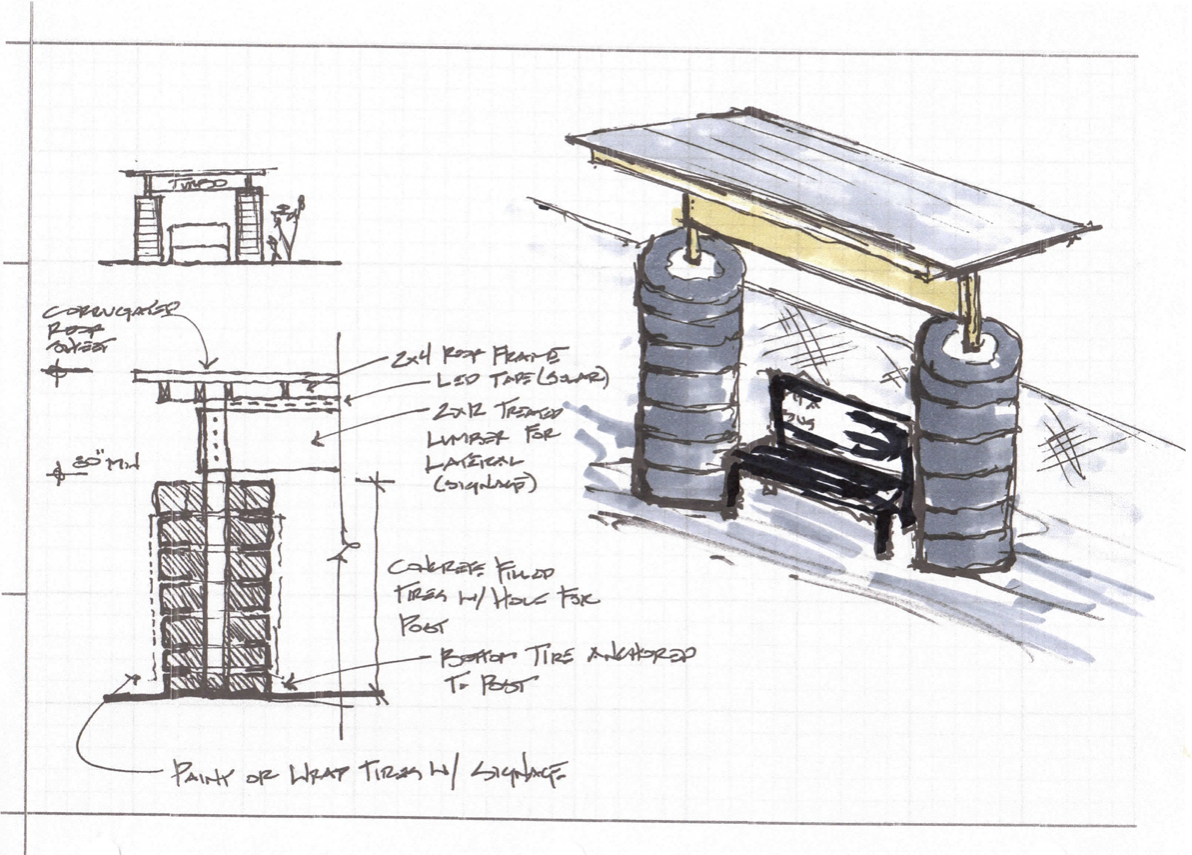 TURBO
CORRUGATED
ROOF
SHEET
2x4 ROOF FRAME
LED TAPE (SOLAR)
2x12 TREATED
LUMBER FOR
LATERAL
(SIGNAGE)
80" MIN
CONCRETE FILLED
TIRES W/ HOLE FOR
POST
BOTTOM TIRE ANCHORED
TO POST
PAINT OR WRAP TIRES W/ SIGNAGE
BUS